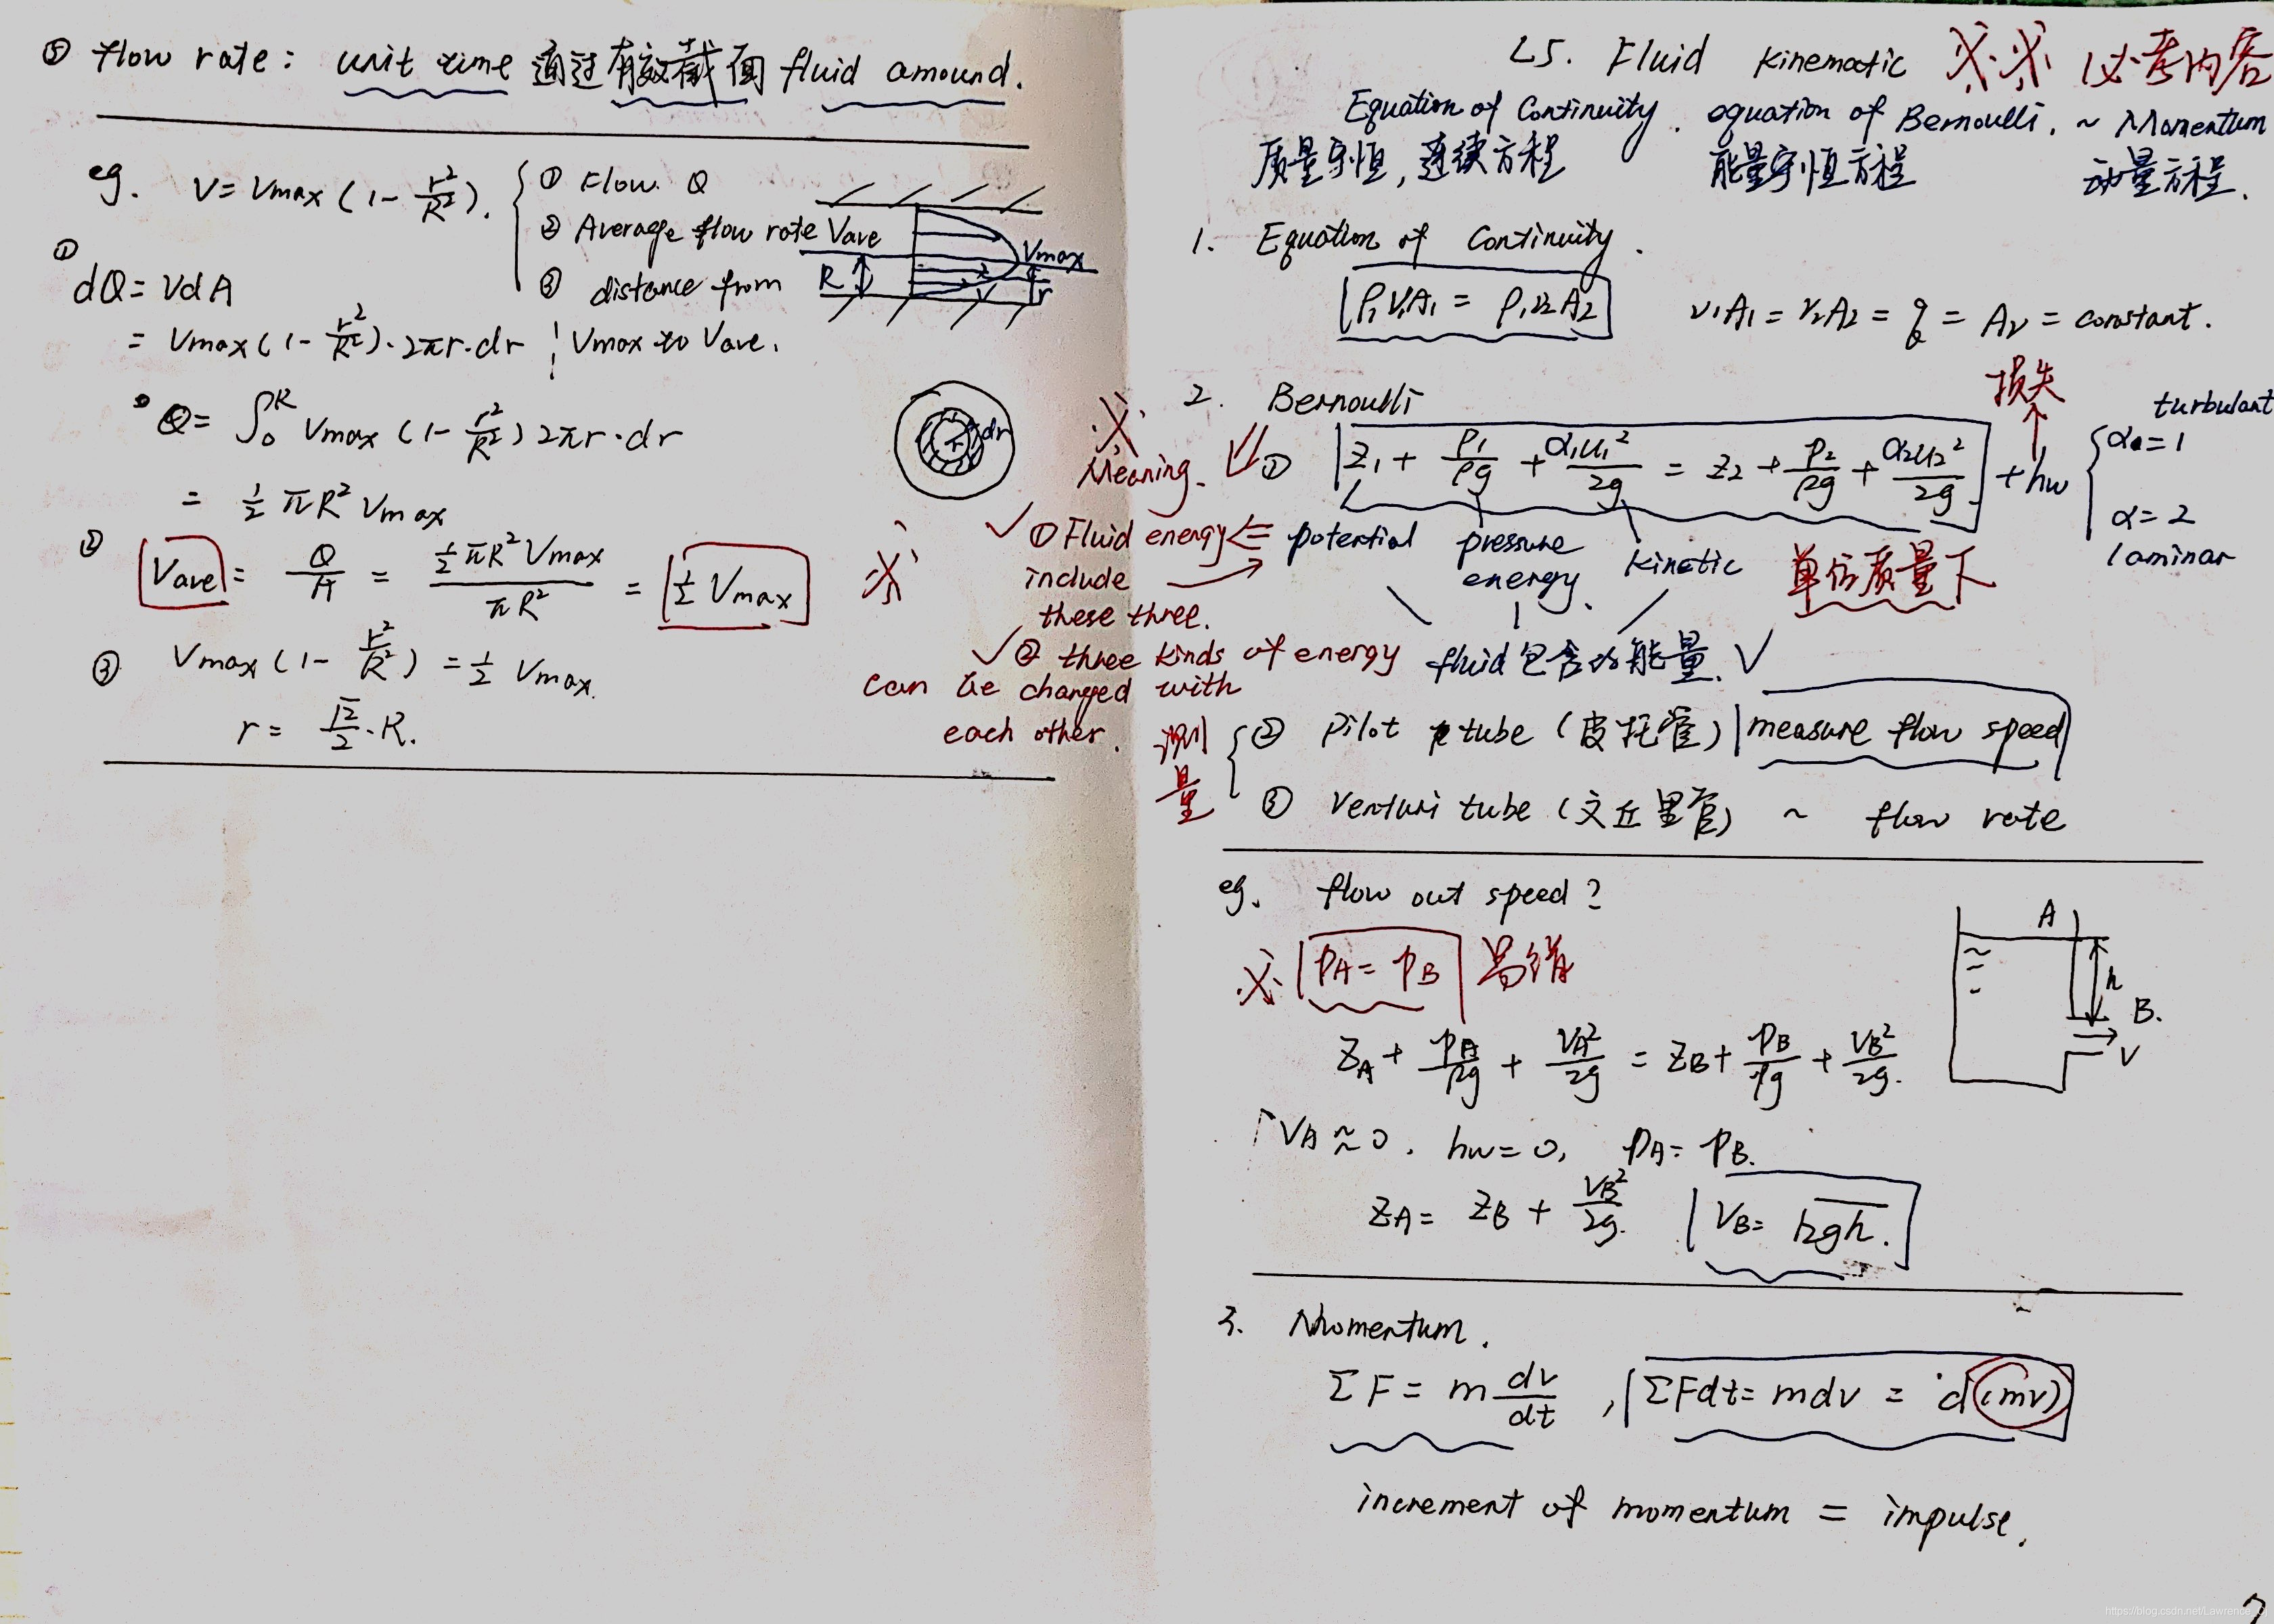 ⑤ flow rate: unit time 通过有效截面 fluid amound.
eg. V = Vmax (1 - r²/R²). { ① Flow. Q
② Average flow rate Vave
③ distance from
Vmax to Vave.
Vmax
R
V
r
①
dQ = VdA
= Vmax (1 - r²/R²) · 2πr · dr
Q = ∫₀ᴿ Vmax (1 - r²/R²) 2πr · dr
= 1/2 πR² Vmax
dr
r
② Vave = Q/A = (1/2 πR² Vmax)/(πR²) = 1/2 Vmax
③ Vmax (1 - r²/R²) = 1/2 Vmax.
r = √2/2 · R.
L5. Fluid Kinematic ※※ 必考内容
Equation of Continuity. equation of Bernoulli. ~ Momentum
质量守恒, 连续方程 能量守恒方程 动量方程.
1. Equation of Continuity.
ρ₁V₁A₁ = ρ₁v₂A₂ v₁A₁ = v₂A₂ = q = Av = constant.
2. Bernoulli
损失
※
Meaning.
① z₁ + p₁/ρg + α₁u₁²/2g = z₂ + p₂/ρg + α₂u₂²/2g + hw
turbulant
α=1
α=2
laminar
✓ ① Fluid energy ⇐ potential pressure energy. kinetic 单位质量下
include
these three.
✓ ② three kinds of energy fluid包含的能量. ✓
can be changed with
each other.
测量 { ② Pilot tube (皮托管) measure flow speed
③ Venturi tube (文丘里管) ~ flow rate
eg. flow out speed?
※ pA = pB 易错
A
h
B.
V
zA + pA/ρg + VA²/2g = zB + pB/ρg + VB²/2g.
VA ≈ 0. hw = 0, pA = pB.
zA = zB + VB²/2g. VB = √2gh.
3. Momentum.
ΣF = m dv/dt , ΣFdt = mdv = d(mv)
increment of momentum = impulse.
https://blog.csdn.net/Lawrence_Q